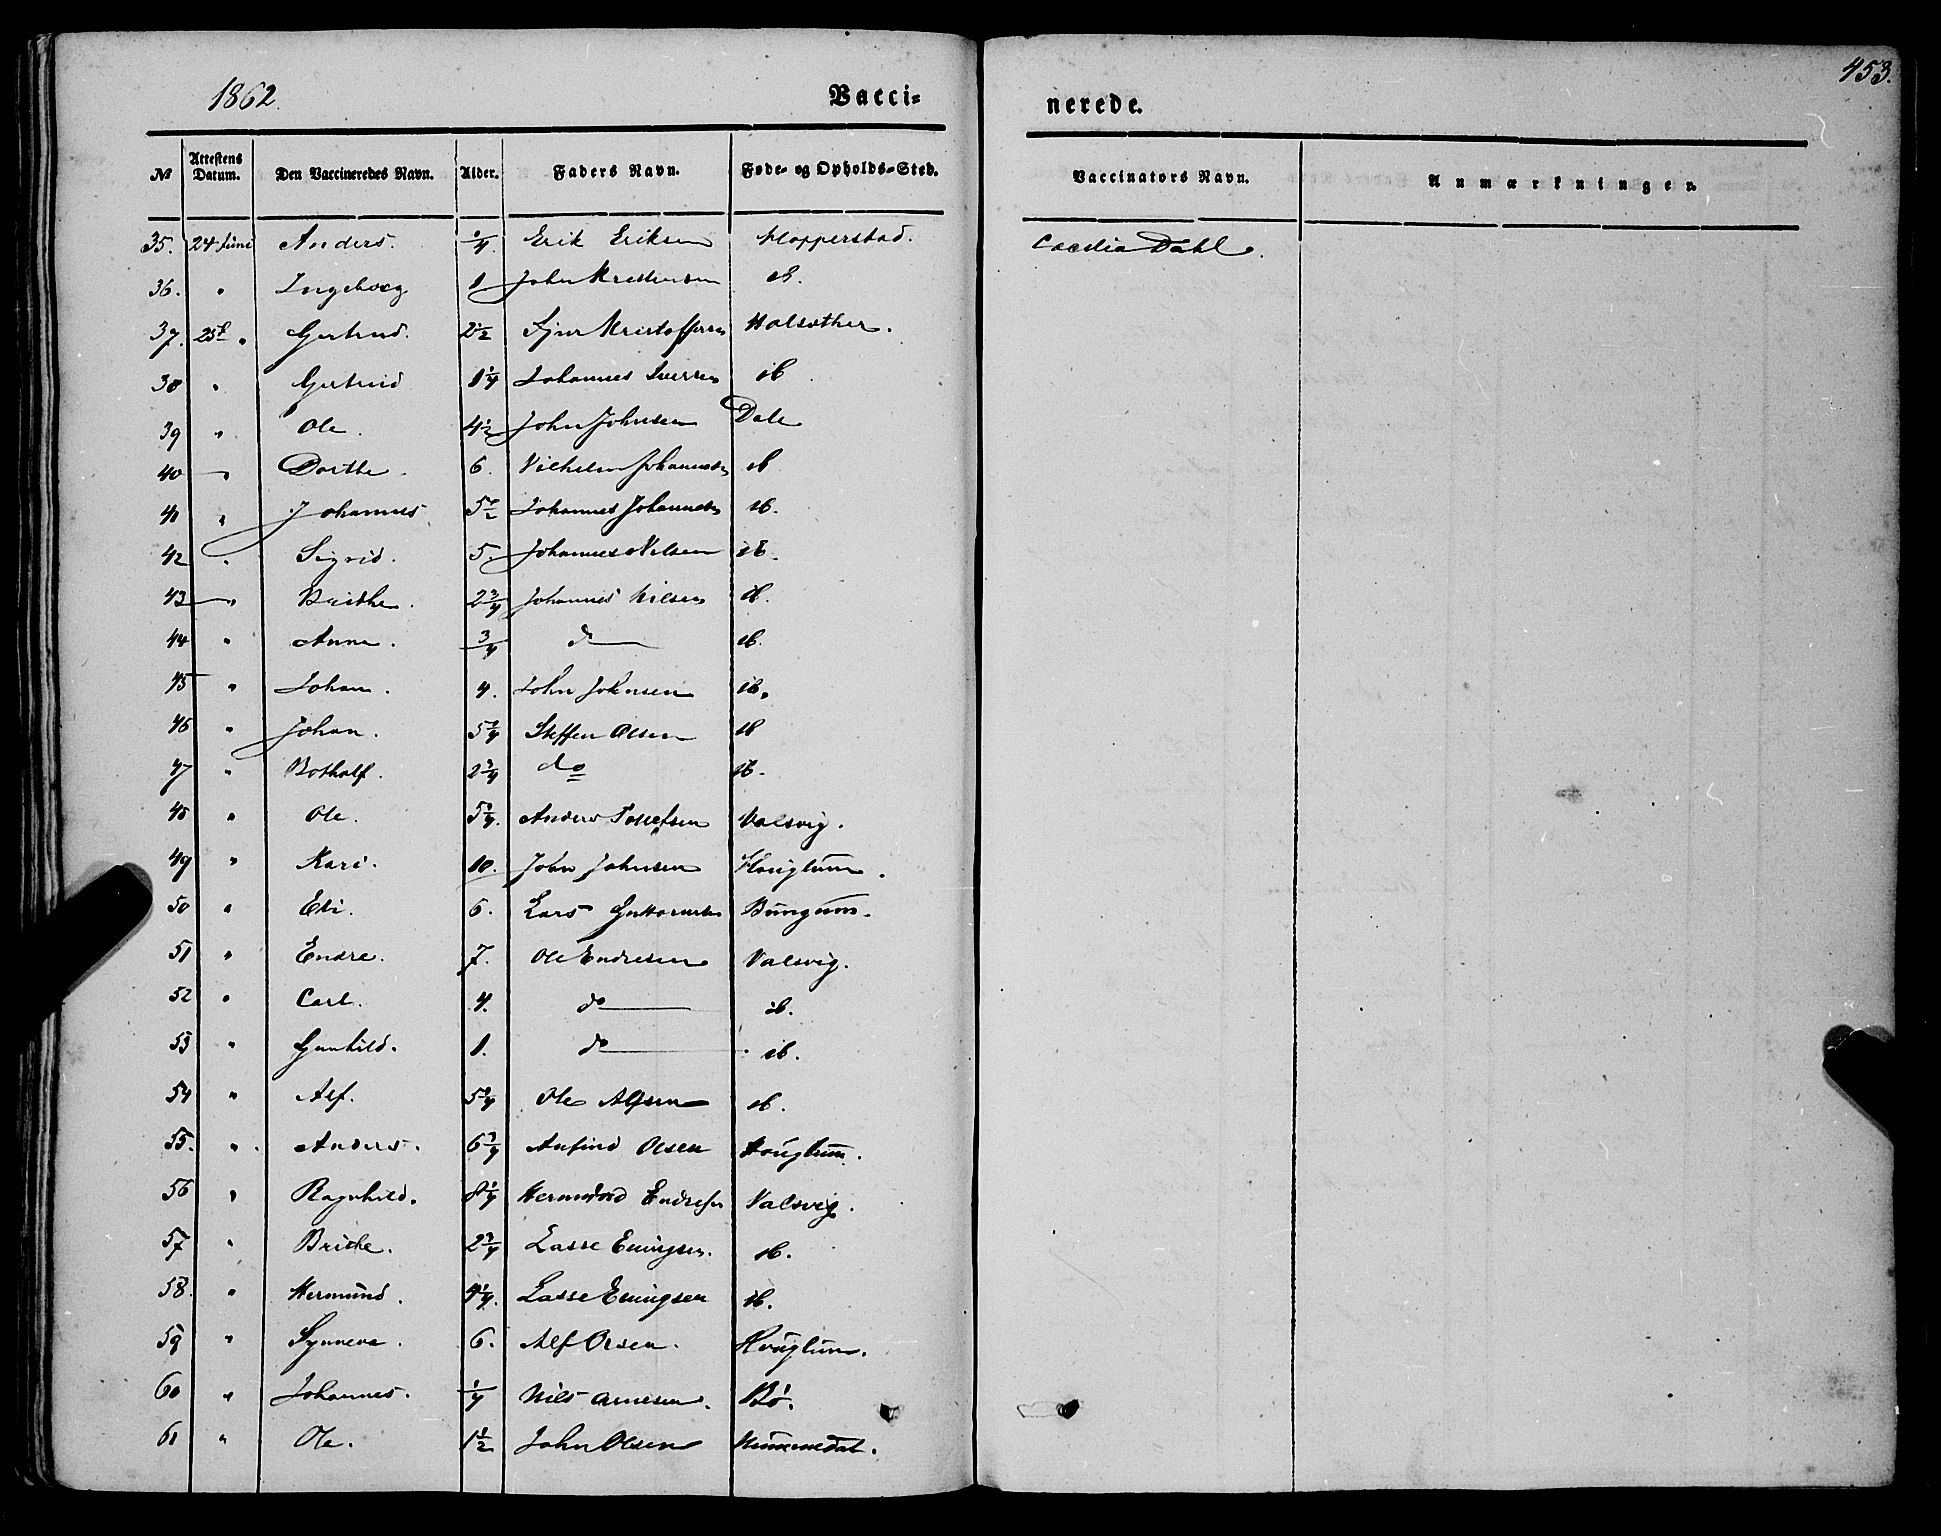 1862. Vacci- nerede. 453.
№ Attestens Datum. Den Vaccineredes Navn. Alder. Faders Navn. Føde- og Opholds-Sted. Vaccinators Navn. Anmærkninger.
35. 24 Juni Anders. 1/4 Erik Eriksen Hopperstad. Cæcilia Dahl.
36. " Ingeborg 1 John ib.
37. 25de " Gertrud. 2 1/2 Sjur Kristoffersen
38 " Gertrud 1 1/4 Johannes Iversen ib
39 " Ole. 4 1/2 John Johnsen Dale
40 " Dorthe. 6. Vilhelm Johannesen ib
41 " Johannes 5 1/2 Johannes Johannesen ib.
42 " Sigrid. 5. Johannes Nilsen ib.
43 " Brithe. 2 3/4 Johannes Nilsen ib.
44 " Anna. 3/4 do ib.
45 " Johan. 4. John Johnsen ib.
46 " Johan. Steffen Olsen ib
47 " Botholf. 2 3/4 do ib.
48 " Ole. Anders Valsvig.
49 " Kari. 10. John Johnsen Houglum.
50 " Eli. 6. Lars Guttormsen
51 " Endre. 7. Ole Endresen Valsvig.
52 " Carl. 4. do ib.
53 " Gunhild. 1. do ib.
54 " Alf. Ole Alfsen ib.
55. " Anders. 6 3/4 Anfind Olsen Houglum.
56 " Ragnhild. 8 1/4 Hermund Endresen Valsvig.
57 " Brithe. 2 3/4 Lasse Eningsen. ib.
58. " Hermund. 4 1/4. Lasse Eningsen ib.
59 " Synneva. 6. Alf Olsen. Houglum.
60 " Johannes. 1/4 Nils Arnesen. Bø.
61 " Ole. 1 1/2 John Olsen